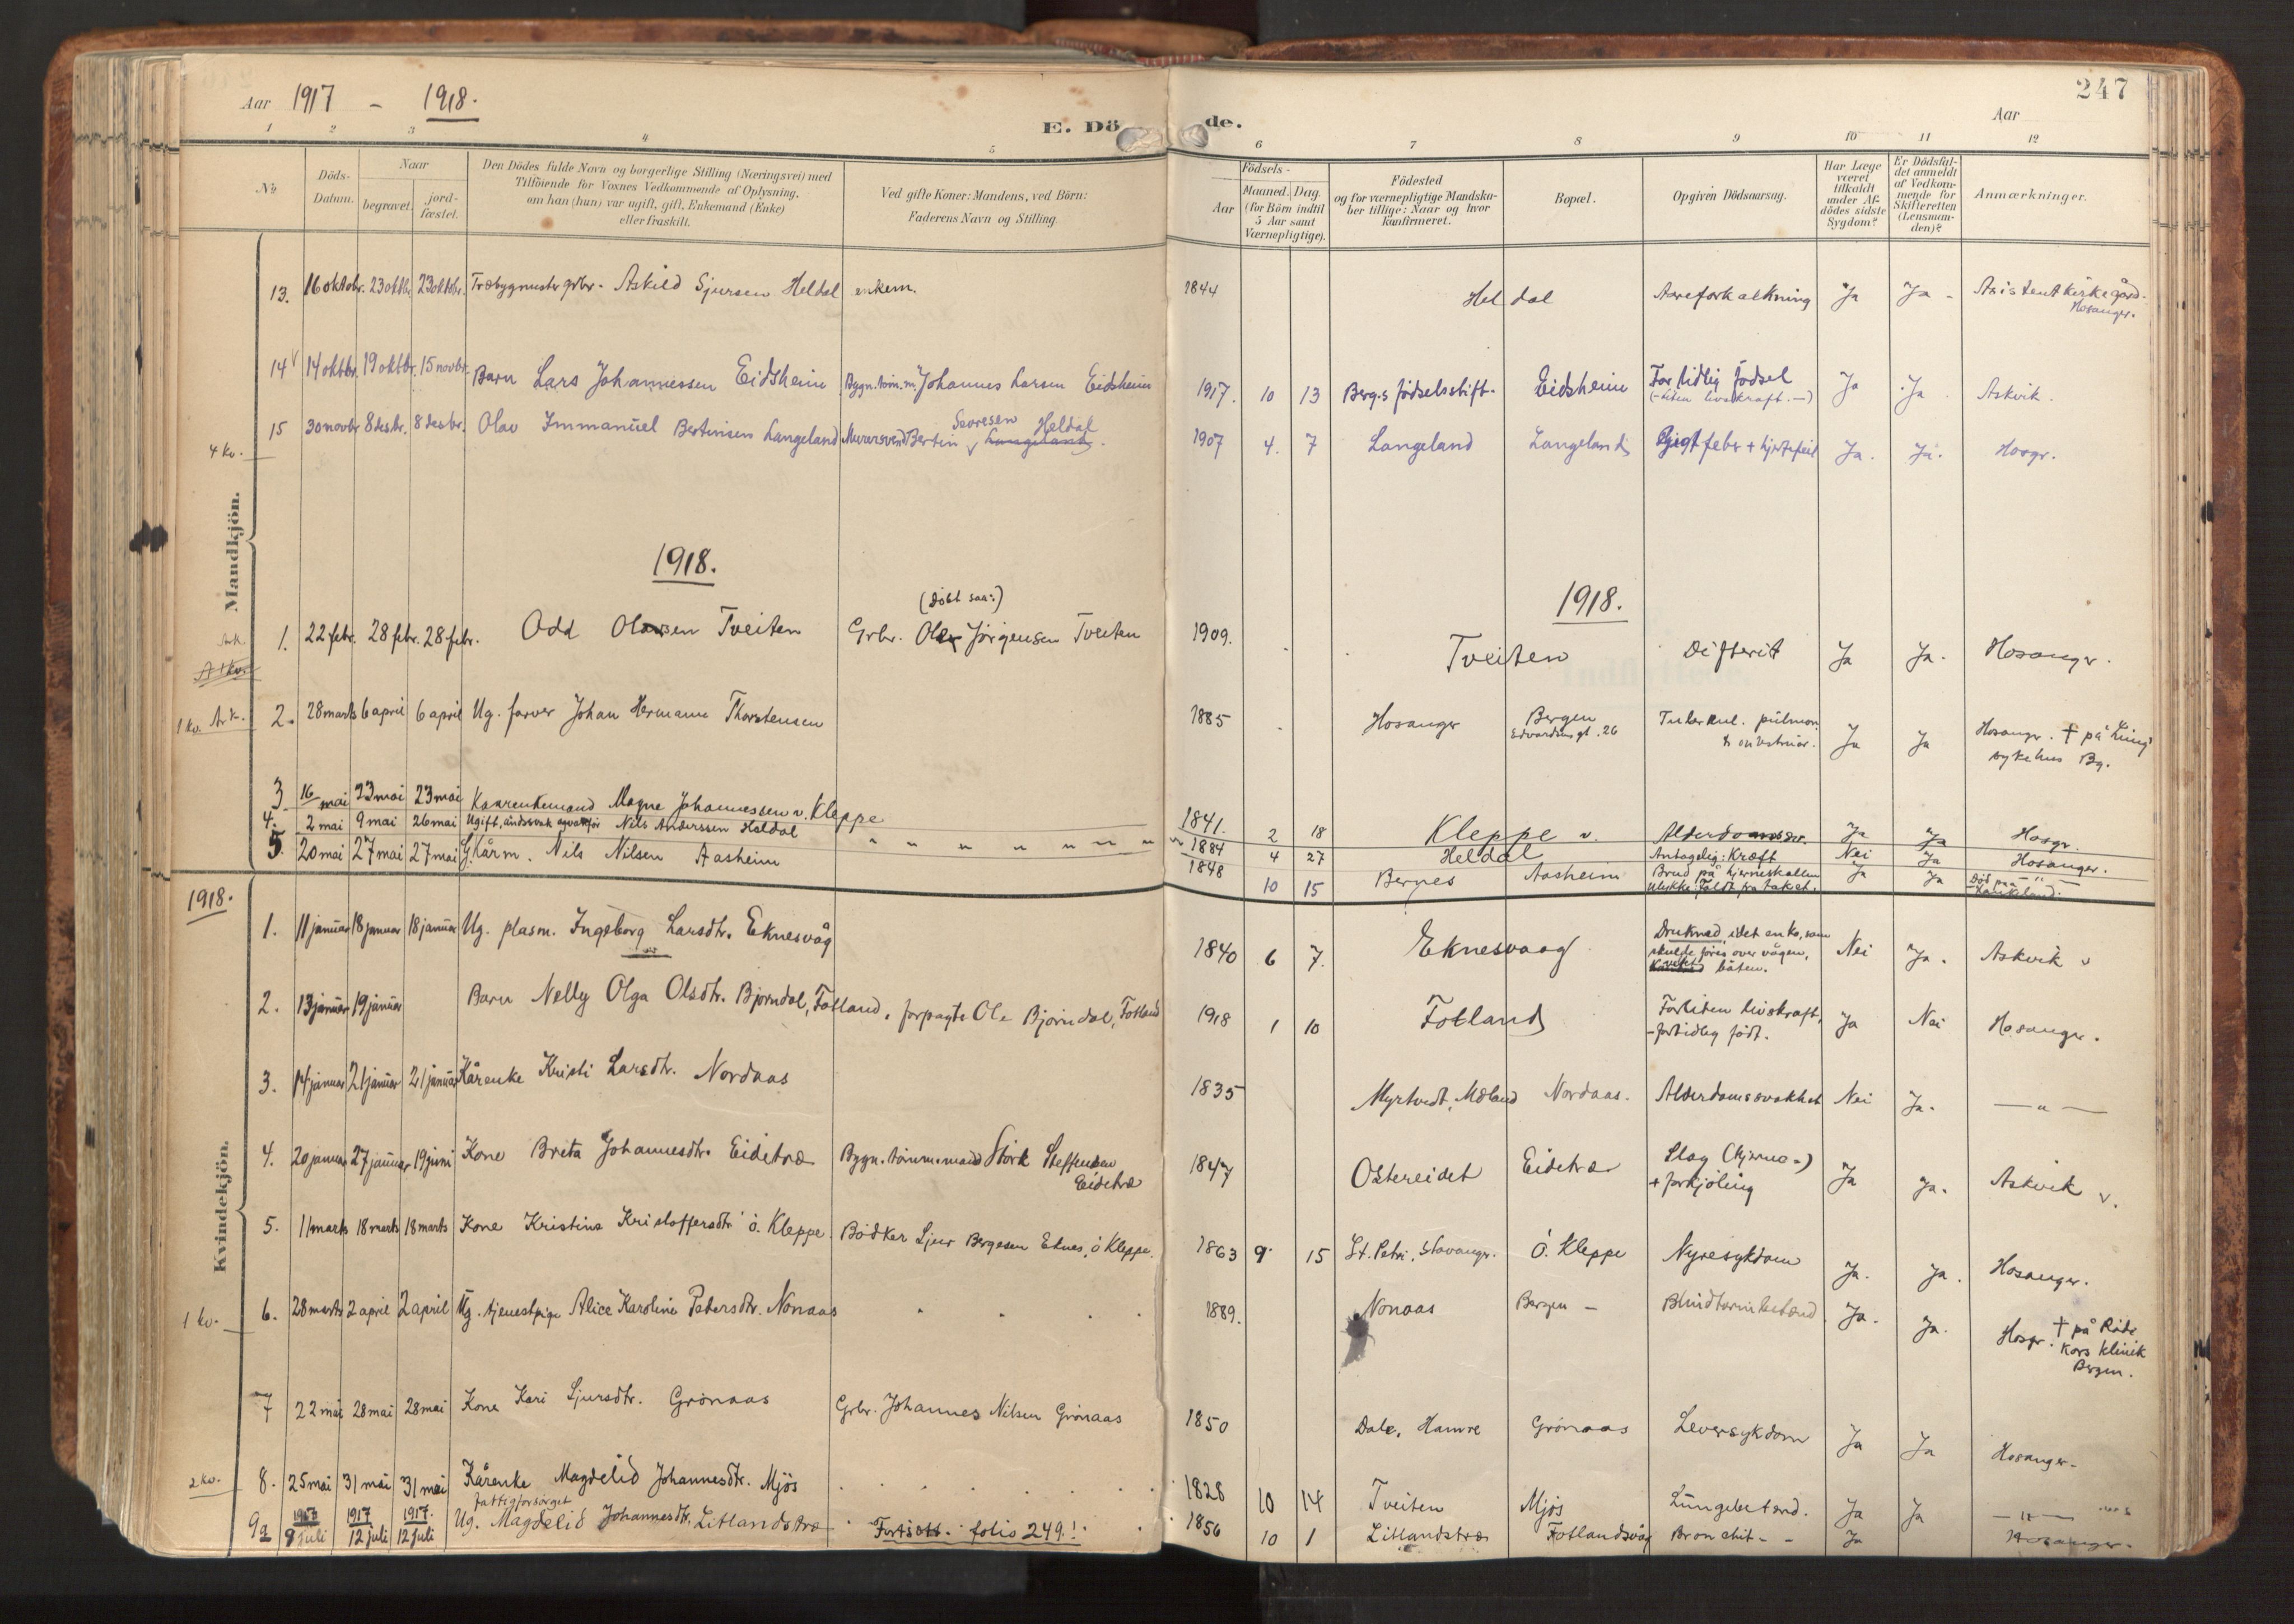 247
Aar 1917 - 1918.
E. Dö de.
Aar
1 2 3 4 5 6 7 8 9 10 11 12
No
Döds-Datum.
Naar
begravet.
jord-fæstet.
Den Dödes fulde Navn og borgerlige Stilling (Næringsvei) med
Tilföiende for Voxnes Vedkommende af Oplysning,
om han (hun) var ugift, gift, Enkemand (Enke)
eller fraskilt.
Ved gifte Koner: Mandens, ved Börn:
Faderens Navn og Stilling.
Födsels-
Aar
Maaned. Dag.
(for Börn indtil
5 Aar samt
Værnepligtige).
Födested
og for værnepligtige Mandska-
ber tillige: Naar og hvor
konfirmeret.
Bopæl.
Opgiven Dödsaarsag.
Har Læge
været
tilkaldt
under Af-
dödes sidste
Sygdom?
Er Dödsfal-
det anmeldt
af Vedkom-
mende for
Skifteretten
(Lensman-
den)?
Anmærkninger.
Mandkjön.
13. 16 oktobr. 23 oktbr. 23 oktobr. Træbygmester grbr. Askild Sjursen Heldal enkem. 1844 Heldal Aareforkalkning Ja Ja - Assistentkirkegård.
Hosanger.
14 14 oktbr. 19 oktbr. 15 novbr. Barn Lars Johannessen Eidsheim Bygn.tøm.m. Johannes Larsen Eidsheim 1917. 10 13 Berg.s fødselsstift. Eidsheim For tidlig fødsel Ja Ja Askvik.
(-liten livskraft.-)
Sjovesen Heldal
15 30 novbr 8 desbr. 8 desbr. Olav Immanuel Bertinsen Langeland Murarsvend Bertin v Langeland. 1907 4. 7 Langeland Langeland Gigtfeber + hjertefeil Ja. Ja. Hosgr.
4 kv.
1918.
1918.
(døbt saa:)
1. 22 febr. 28 febr. 28 febr. Odd Olavsen Tveiten Grbr. Olav Jørgensen Tveiten 1909. Tveiten Difterit Ja Ja. Hosanger.
1 kv. Ark.
2. 28 marts 6 april 6 april Ug. farver Johan Hermann Thorstensen 1885 Hosanger Bergen Tuberkul. pulmon. Ja Ja Hosangr. † på Lung
Edvardsens gt. 26
sykehus Bg.
3 16 mai 23 mai 23 mai Kaarenkemand Magne Johannessen v. Kleppe 1841. 2 18 Kleppe v. Ja Ja Hosgr.
4. 2 mai 9 mai 26 mai Ugift, åndssvak Nils Anderssen Heldal 1884 4 27 Heldal Antagelig: Kræft Nei Ja Hosanger.
5. 20 mai 27 mai 27 mai G. Kårm. Nils Nilsen Aasheim 1848 10 15 Bernes Aasheim Brud på hjerneskallen Ja Ja - " -
ulykke: Faldt fra taket.
Død paa Haukeland.
1918.
Kvindekjön.
1. 11 januar 18 januar 18 januar Ug. plasm. Ingeborg Larsdtr. Eknesvåg 1840 6 7. Eknesvaag Druknad, idet en ko, som Nei Ja. Askvik v
skulde føres over vågen,
veltet båten.
2. 13 januar 19 januar Barn Nelly Olga Olsdtr. Bjørndal, Fotland. forpagter Ole Bjørndal, Fotland 1918 1 10 Fotland For liten livskraft, Ja Nei Hosanger.
- for tidlig født.
3. 14 januar 21 januar 21 januar Kårenke Kristi Larsdtr. Nordaas 1835 Myrtvedt, Mæland Nordaas. Alderdomssvakhet Nei Ja. - " -
4. 20 januar 27 januar 19 juni Kone Brita Johannesdtr. Eidetræ Bygn.tømm.mand Störk Steffensen 1847 Ostereidet Eidetræ Slag (hjerne-) Ja Ja. Askvik v.
Eidetræ
+ forkjøling
5. 11 marts 18 marts 18 marts Kone Kristine Kristoffersdtr. ö. Kleppe. Bødker Sjur Bergesen Eknes, ö Kleppe. 1863 9. 15 St. Petri, Stavanger. Ö. Kleppe Nyresykdom Ja. Ja. Hosanger.
6. 28 marts 2 april 2 april Ug. tjenestpige Alice Karoline Petersdtr. Nonaas 1889. Nonaas Bergen - Blindtarmbetænd. Ja. Ja. Hosgr. † på Røde
Kors klinik
Bergen.
1 kv.
7 22 mai 28 mai 28 mai Kone Kari Sjursdtr. Grønaas Grbr. Johannes Nilsen Grønaas 1850 Dale, Hamre Grønaas Leversykdom Ja Ja Hosanger.
2 kv.
8. 25 mai 31 mai 31 mai Kårenke Magdelid Johannesdtr. Mjös 1828 10 14 Tveiten Mjös Lungebetænd. Ja Ja - " -
fattigforsörget
9a 1917 9 juli 1917 12 juli 1917. 12 juli Ug. Magdelid Johannesdtr. Litlandstræ 1856 10 1 Litlandstræ Fotlandsvåg Bronchit - - Ja Hosanger.
Fortsatt. folio 249.!